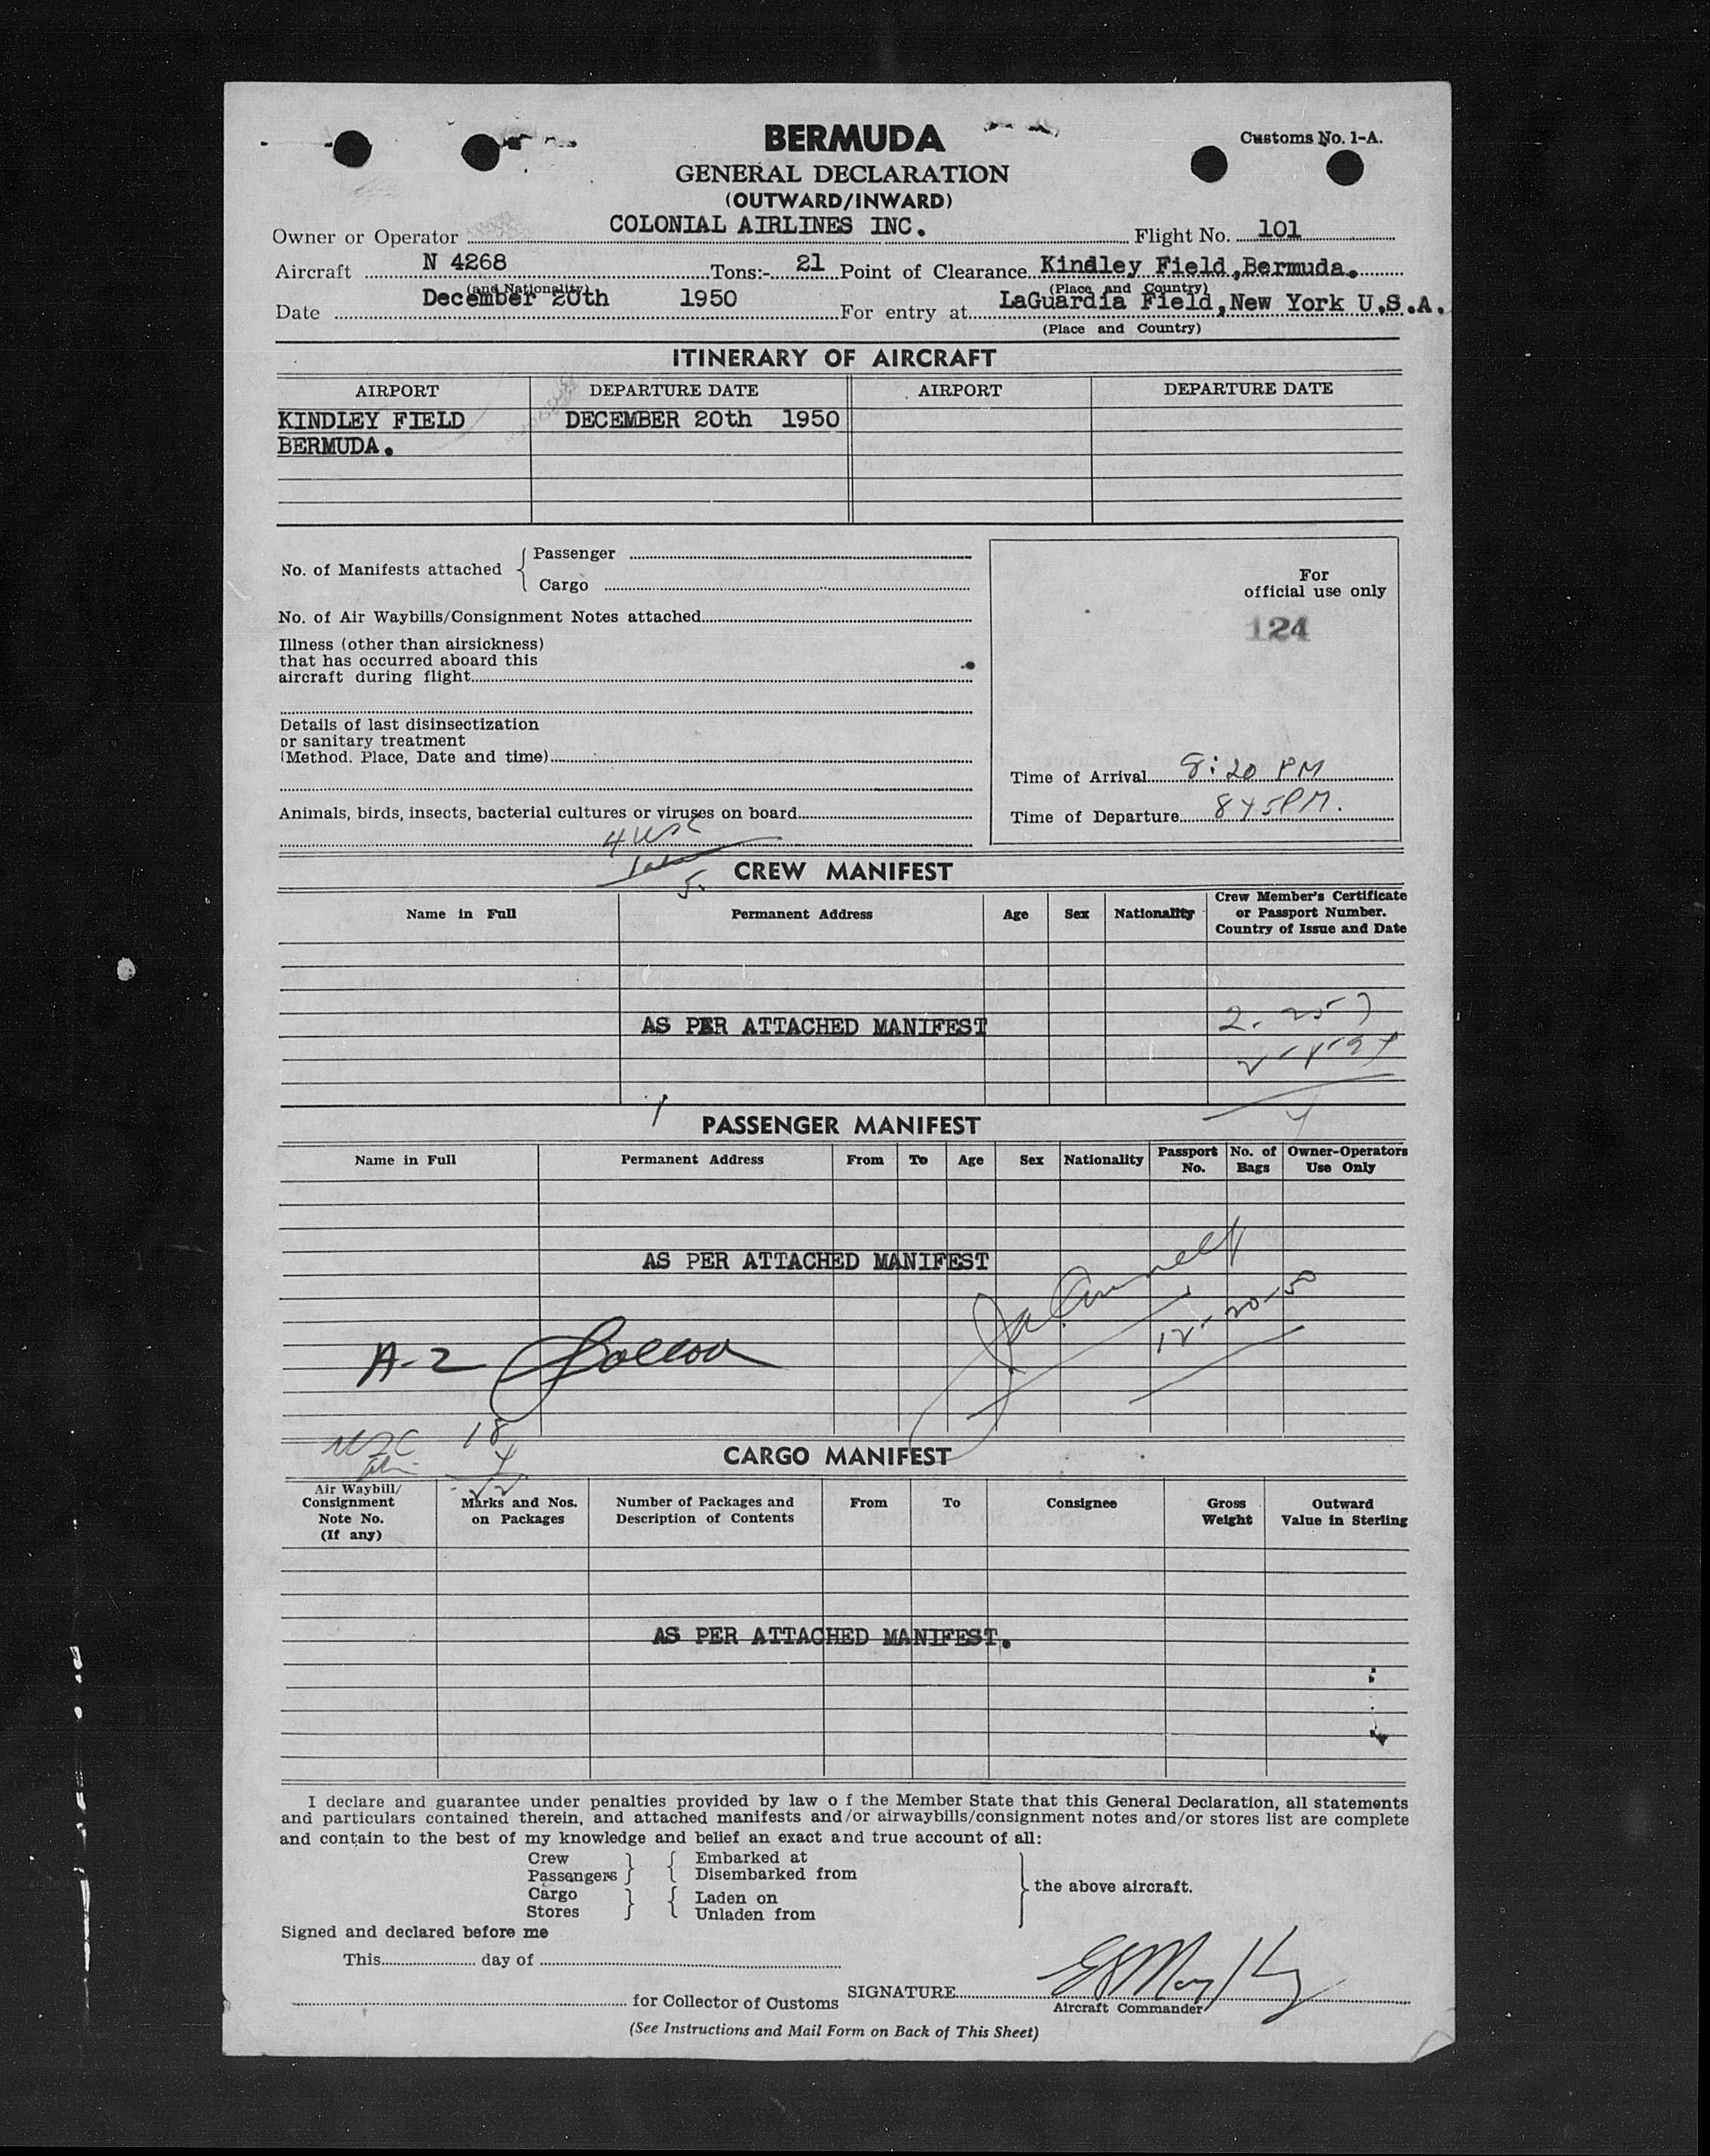 BERMUDA
Customs No. 1-A.
GENERAL DECLARATION
(OUTWARD/INWARD)
Owner or Operator COLONIAL AIRLINES INC. Flight No. 101
Aircraft N 4268 Tons:- 21 Point of Clearance Kindley Field, Bermuda.
(and Nationality) (Place and Country)
Date December 20th 1950 For entry at LaGuardia Field, New York U.S.A.
(Place and Country)
ITINERARY OF AIRCRAFT
AIRPORT DEPARTURE DATE AIRPORT DEPARTURE DATE
KINDLEY FIELD DECEMBER 20th 1950
BERMUDA.
No. of Manifests attached { Passenger
Cargo
No. of Air Waybills/Consignment Notes attached
Illness (other than airsickness)
that has occurred aboard this
aircraft during flight
Details of last disinsectization
or sanitary treatment
(Method. Place, Date and time)
Animals, birds, insects, bacterial cultures or viruses on board
For
official use only
124
Time of Arrival 8:20 PM
Time of Departure 845PM.
4 USC
5.
CREW MANIFEST
Name in Full Permanent Address Age Sex Nationality Crew Member's Certificate
or Passport Number.
Country of Issue and Date
AS PER ATTACHED MANIFEST
PASSENGER MANIFEST
Name in Full Permanent Address From To Age Sex Nationality Passport No. No. of Bags Owner-Operators Use Only
AS PER ATTACHED MANIFEST
12-20-50
A-2
18
4
22
CARGO MANIFEST
Air Waybill/
Consignment
Note No.
(If any)
Marks and Nos.
on Packages
Number of Packages and
Description of Contents
From To Consignee Gross
Weight
Outward
Value in Sterling
AS PER ATTACHED MANIFEST.
I declare and guarantee under penalties provided by law o f the Member State that this General Declaration, all statements
and particulars contained therein, and attached manifests and/or airwaybills/consignment notes and/or stores list are complete
and contain to the best of my knowledge and belief an exact and true account of all:
Crew
Passengers } { Embarked at
Disembarked from
Cargo
Stores } { Laden on
Unladen from
} the above aircraft.
Signed and declared before me
This day of
for Collector of Customs SIGNATURE
Aircraft Commander
(See Instructions and Mail Form on Back of This Sheet)